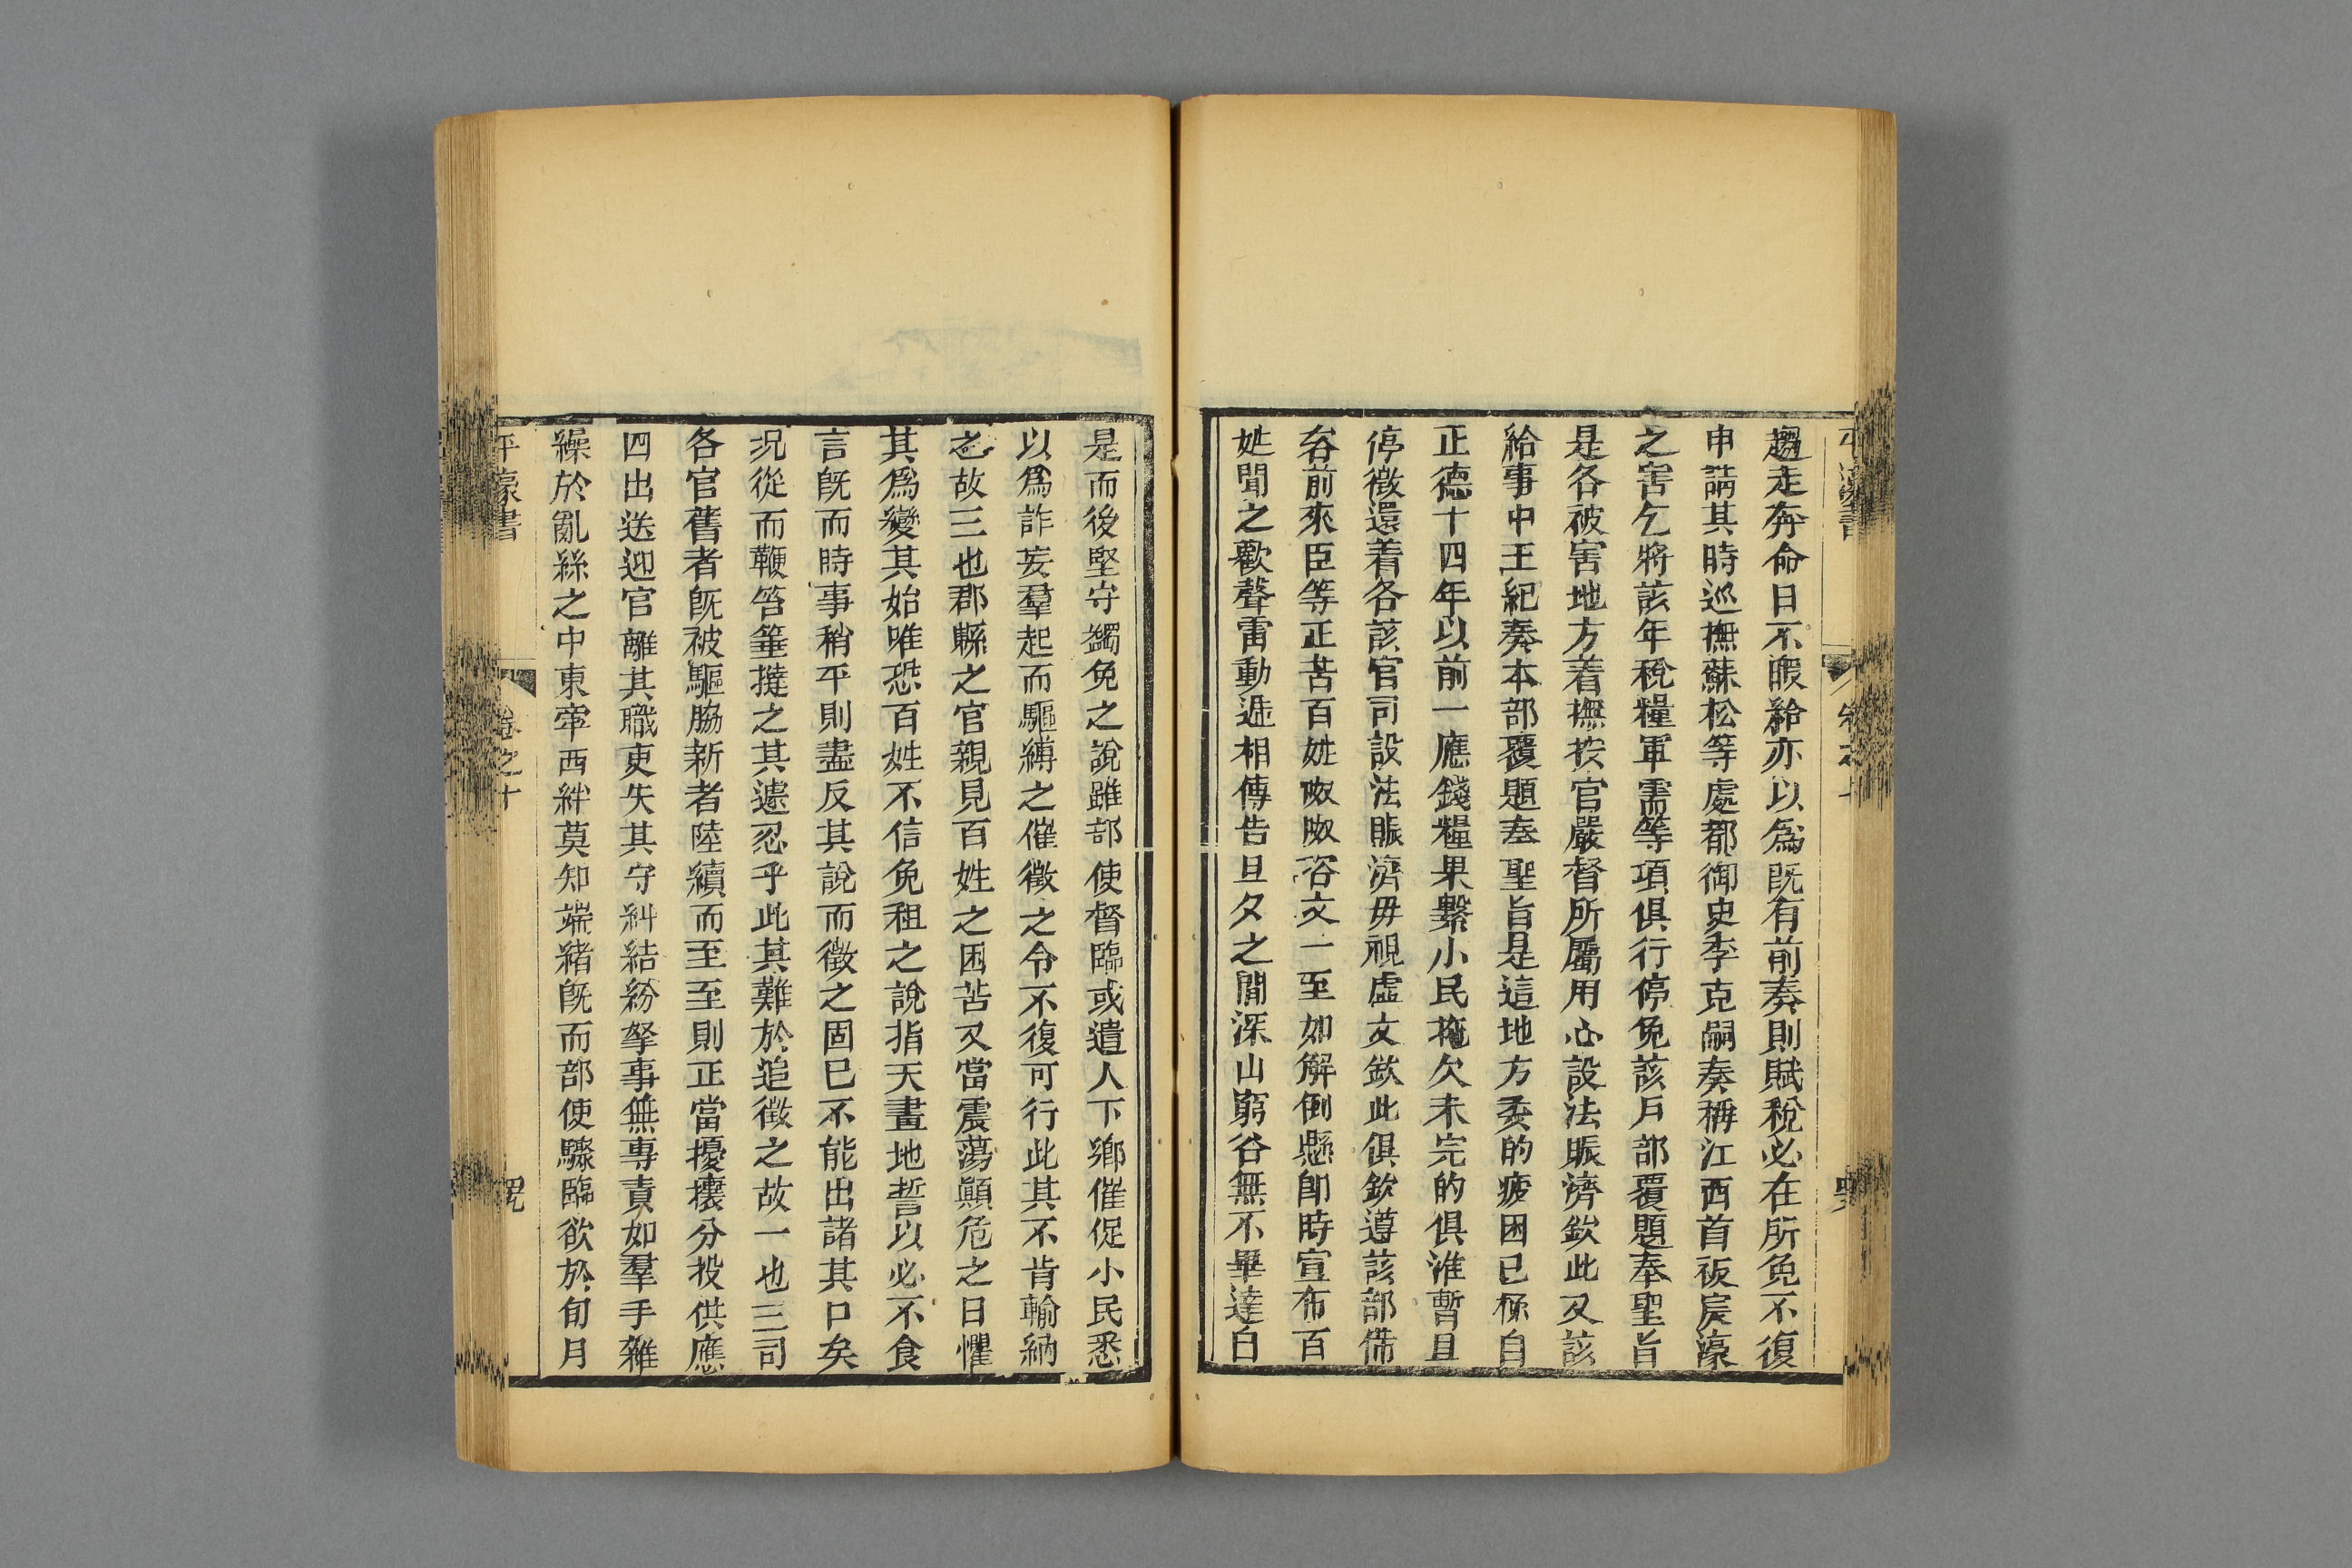 趨走奔命日不暇給亦以爲旣有前奏則賦稅必在所免不復
申請其時巡撫蘇松等處都御史李克嗣奏稱江西首被宸濠
之害乞將該年稅糧軍需等項俱行停免該戶部覆題奉聖旨
是各被害地方着撫按官嚴督所屬用心設法賑濟欽此又該
給事中王紀奏本部覆題奉聖旨是這地方委的疲困已極自
正德十四年以前一應錢糧果繫小民拖欠未完的俱准暫且
停徵還着各該官司設法賑濟毋視虛文欽此俱欽遵該部備
咨前來臣等正苦百姓呶呶咨文一至如解倒懸卽時宣布百
姓聞之歡聲雷動遞相傳告旦夕之間深山窮谷無不畢達自
是而後堅守蠲免之說雖部使督臨或遣人下鄉催促小民悉
以爲詐妄羣起而驅縛之催徵之令不復可行此其不肯輸納
之故三也郡縣之官親見百姓之困苦又當震蕩顚危之日懼
其爲變其始唯恐百姓不信免租之說指天畫地誓以必不食
言旣而時事稍平則盡反其說而徵之固已不能出諸其口矣
況從而鞭笞箠撻之其遽忍乎此其難於追徵之故一也三司
各官舊者旣被驅脇新者陸續而至至則正當擾攘分投供應
四出送迎官離其職吏失其守糾結紛拏事無專責如羣手雜
繰於亂絲之中東牽西絆莫知端緖旣而部使驟臨欲於旬月
平濠書
卷之十